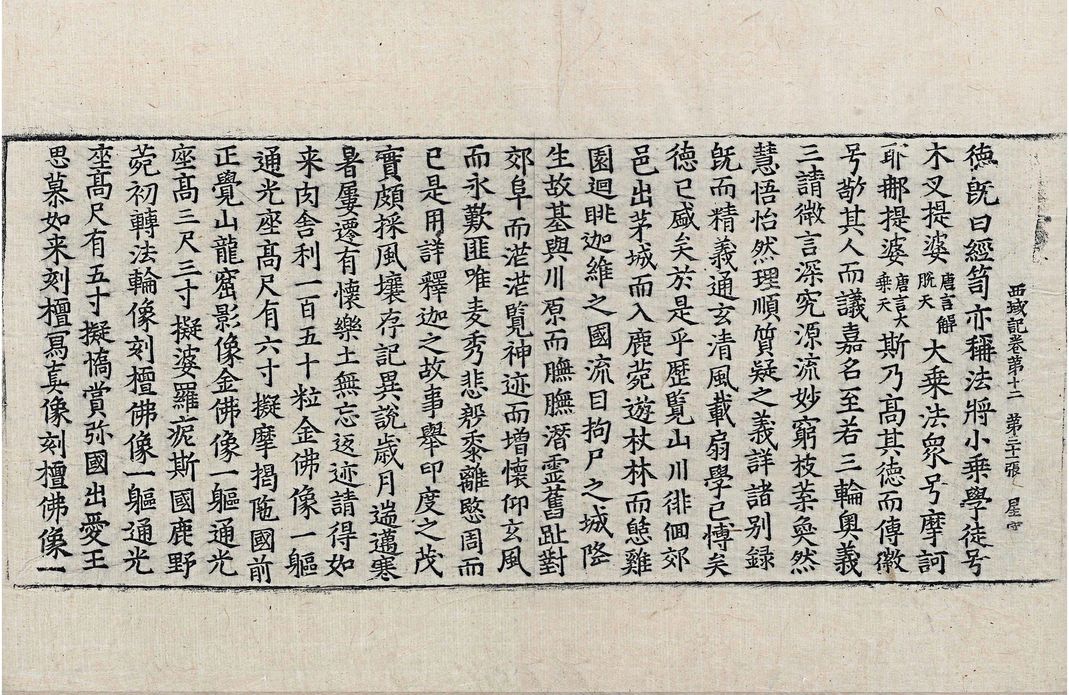 西域記卷第十二 第二十張 星字
德旣曰經笥亦稱法將小乘學徒号
木叉提婆唐言解脫天大乘法衆号摩訶
耶那提婆唐言大乘天斯乃髙其德而傳徽
号敬其人而議嘉名至若三輪奧義
三請微言深究源流妙窮枝葉奐然
慧悟怡然理順質疑之義詳諸別錄
旣而精義通玄清風載扇學已博矣
德已盛矣於是乎歷覽山川徘徊郊
邑出茅城而入鹿菀遊杖林而憩雞
園迴眺迦維之國流目拘尸之城降
生故基與川原而膴膴潛靈舊趾對
郊阜而茫茫覽神迹而增懷仰玄風
而永歎匪唯麦秀悲殷黍離愍周而
已是用詳釋迦之故事舉印度之茂
實頗採風壤存記異說歳月遄邁寒
暑屢遷有懷樂土無忘返迹請得如
来肉舍利一百五十粒金佛像一軀
通光座髙尺有六寸擬摩揭陁國前
正覺山龍窟影像金佛像一軀通光
座髙三尺三寸擬婆羅痆斯國鹿野
菀初轉法輪像刻檀佛像一軀通光
座髙尺有五寸擬憍賞弥國出愛王
思慕如来刻檀寫真像刻檀佛像一